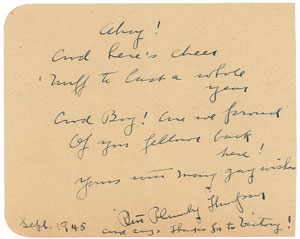 Ahoy!
And here's cheer
'nuff to last a whole
year
And Boy! Are we proud
Of you fellows back
here!
Yours with many gay wishes
Ruth Plumly Thompson
Sept. 1945
and says thanks for to Victory!